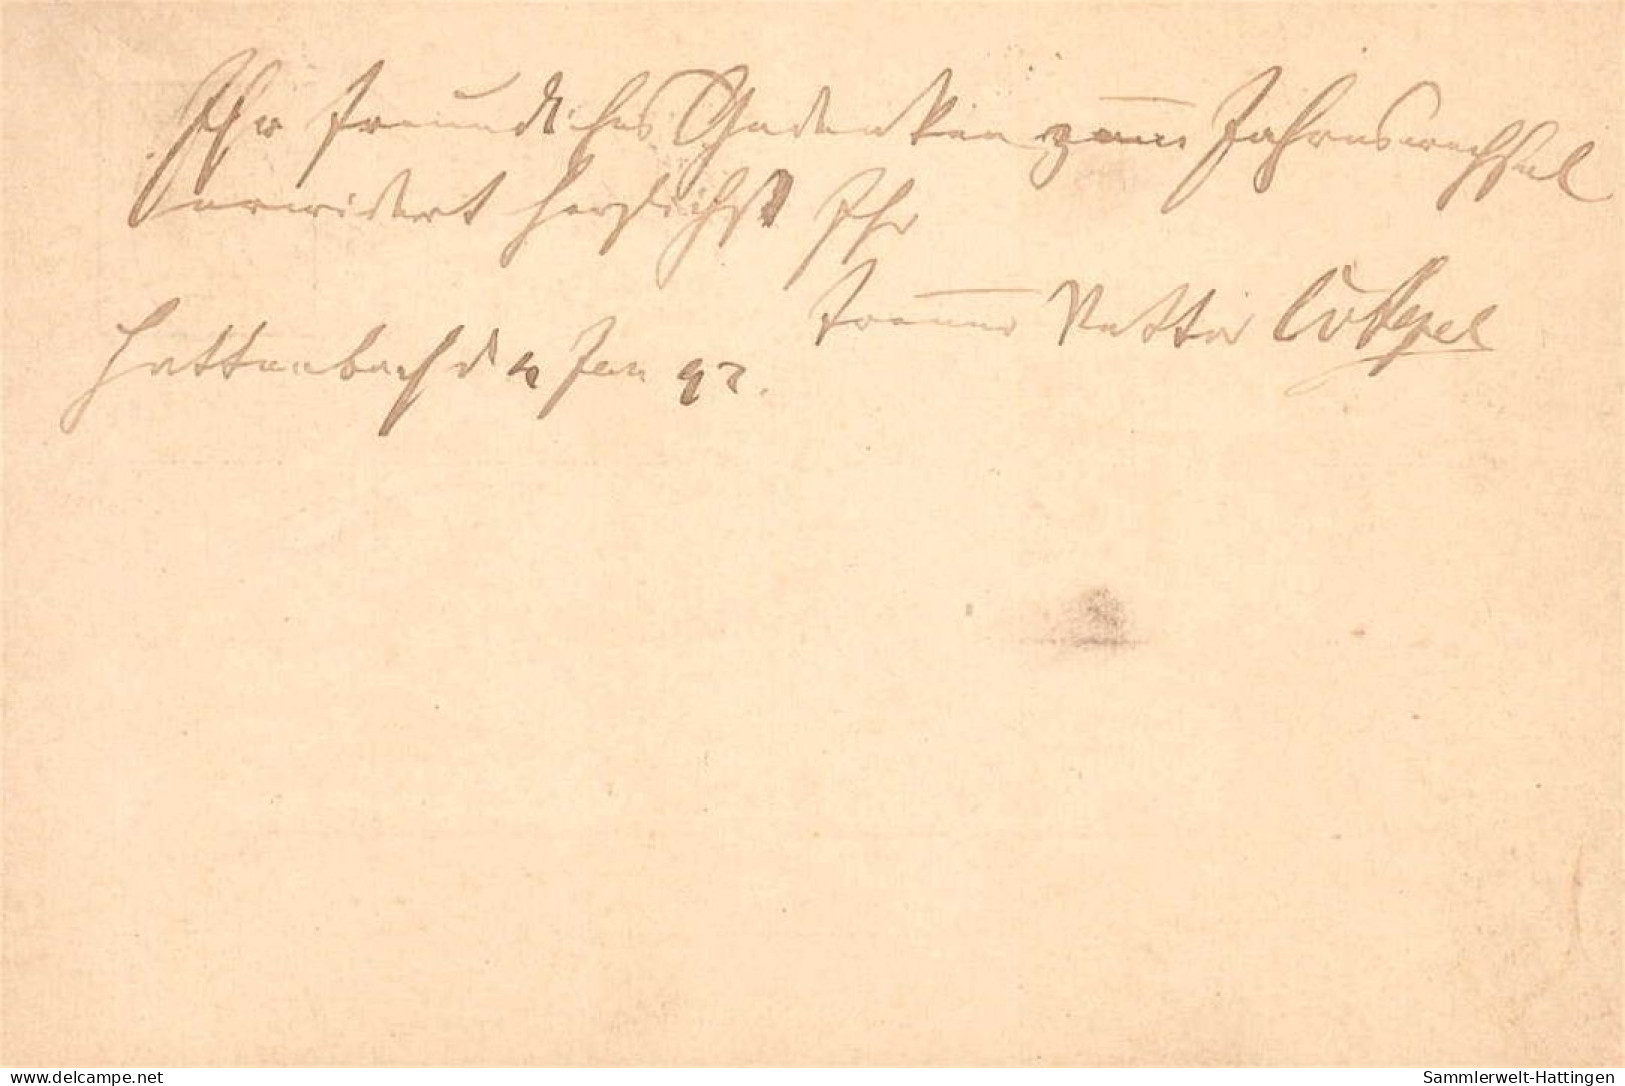 Ihr freundliches Gedenken zum Jahreswechsel
erwidert herzlichst Ihr
treuer Vetter
Hattenbach d 4 Jan 92.
www.delcampe.net
Sammlerwelt-Hattingen